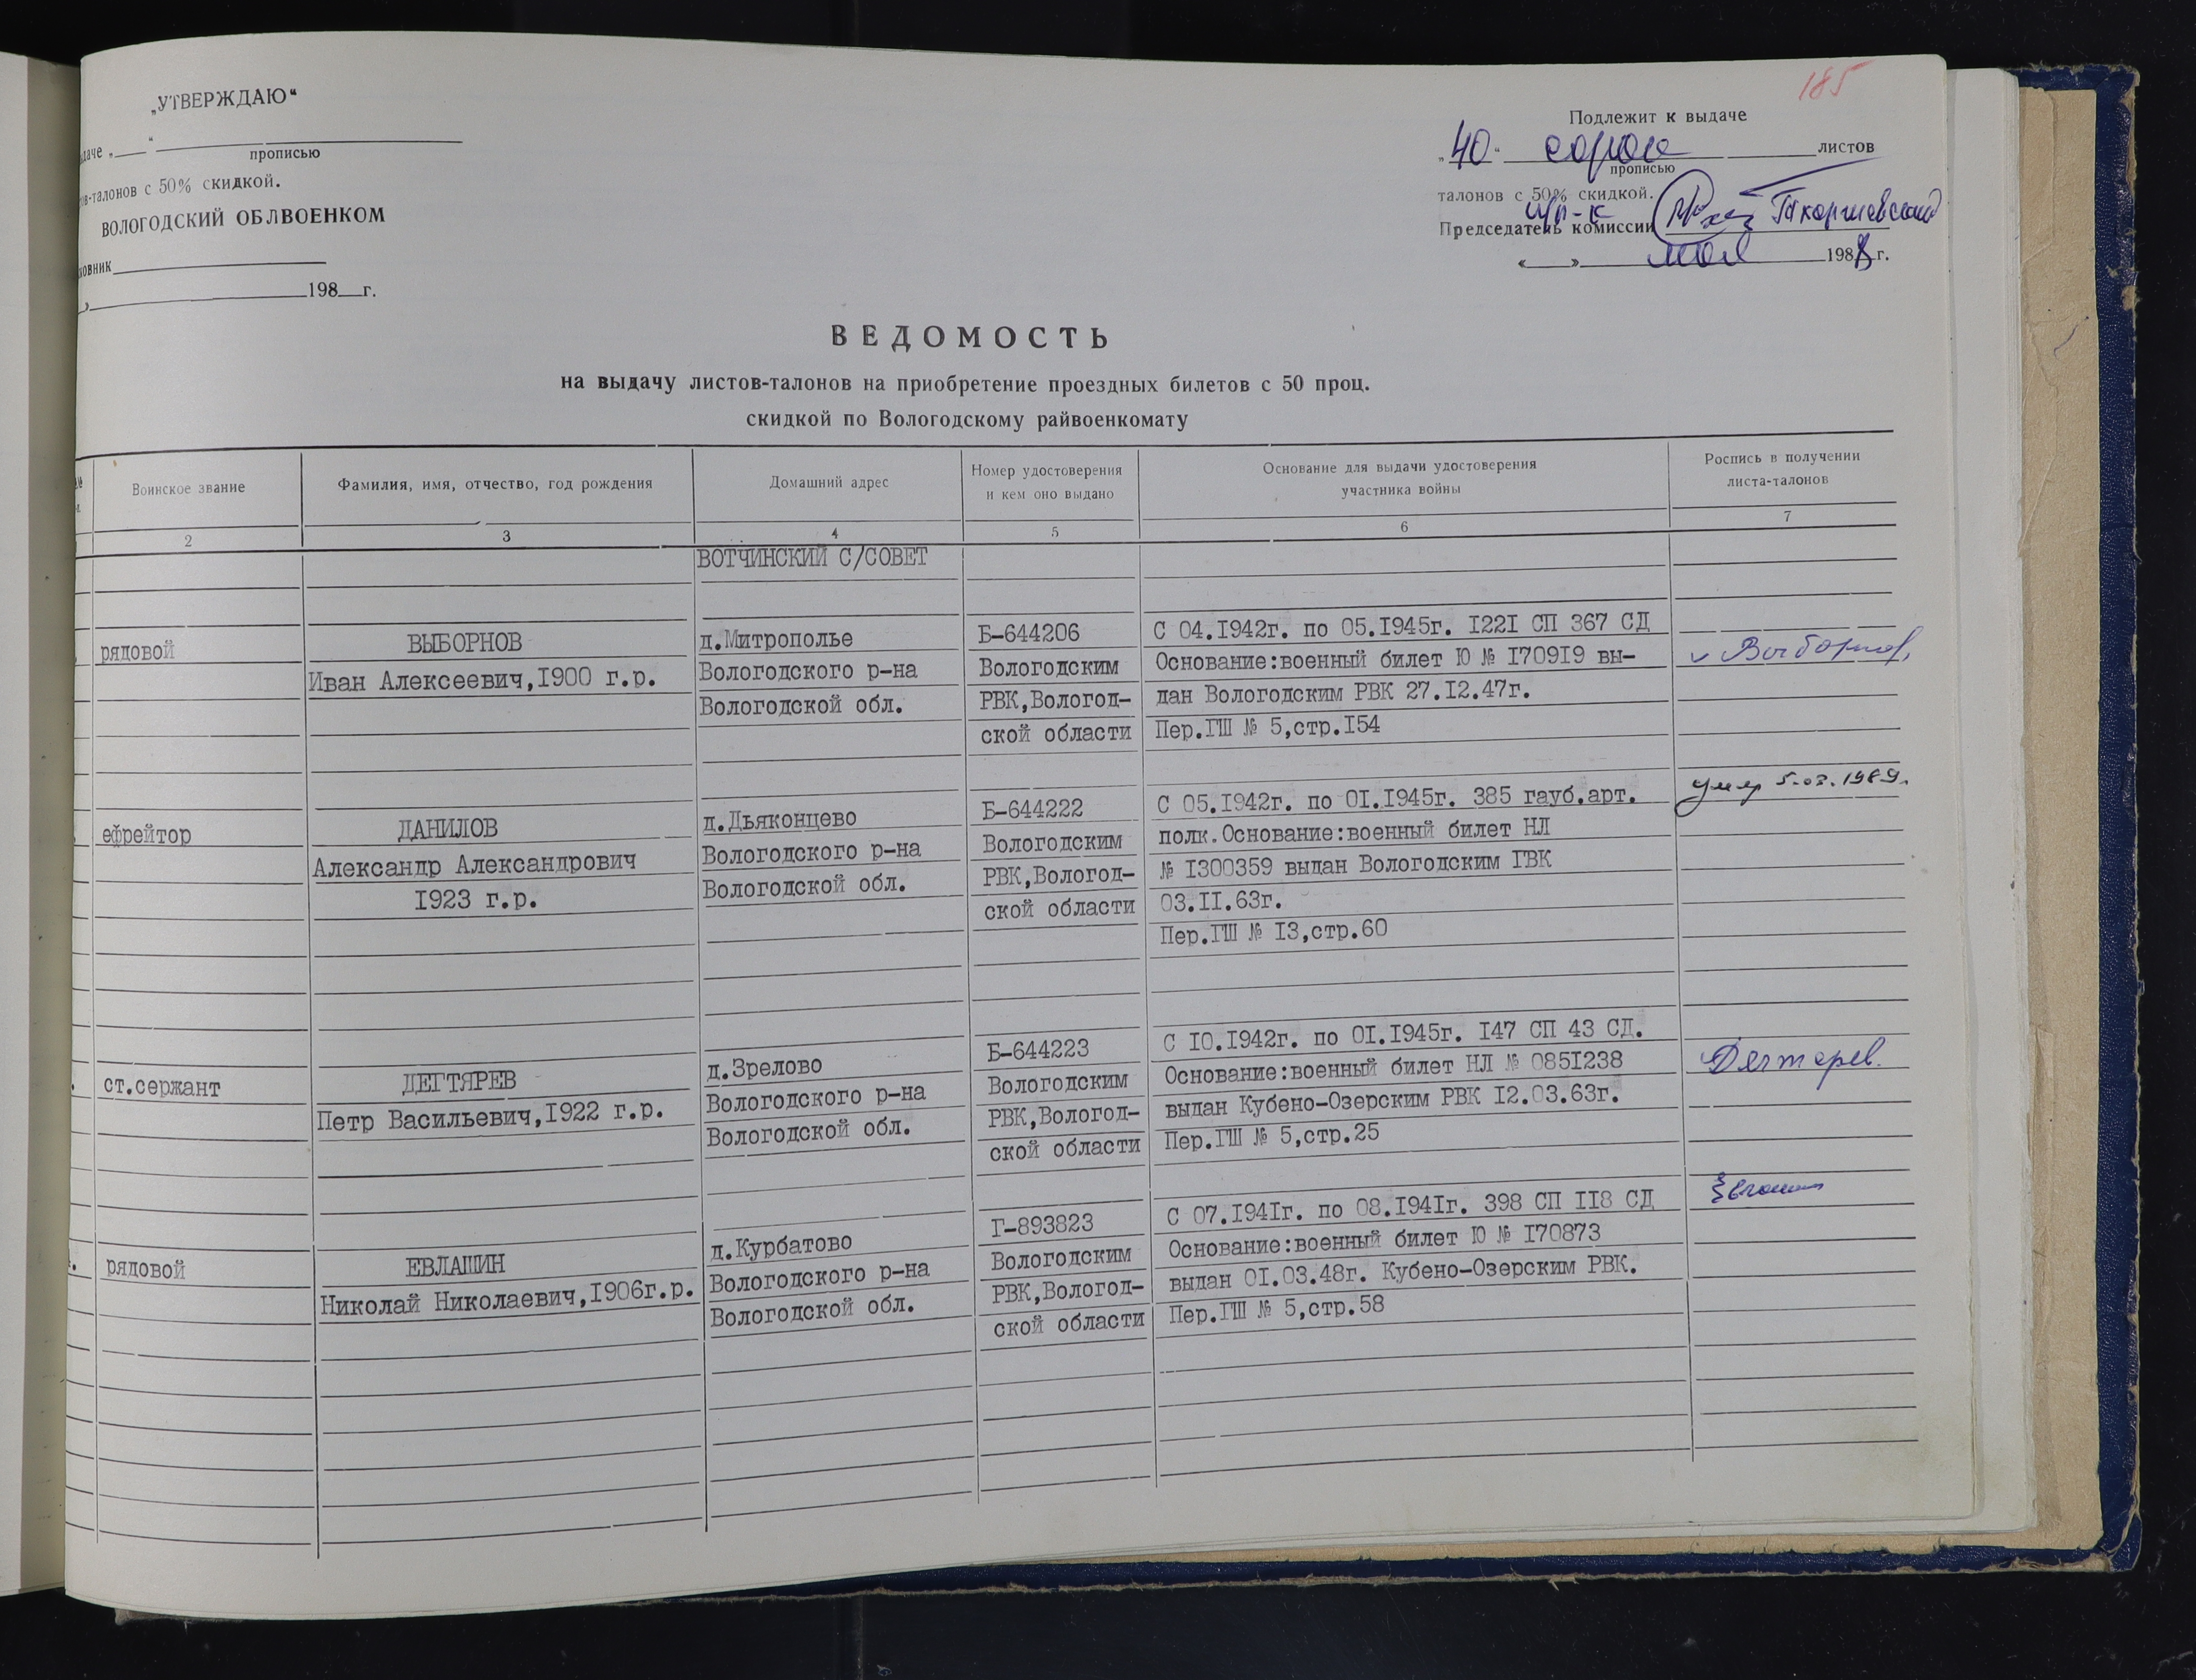 185
„УТВЕРЖДАЮ“
даче „ “
прописью
ов-талонов с 50% скидкой.
ВОЛОГОДСКИЙ ОБЛВОЕНКОМ
ковник
» 198 г.
Подлежит к выдаче
„ 40 “ сорок листов
прописью
талонов с 50% скидкой.
п/п-к
Председатель комиссии
« » мая 1988 г.
ВЕДОМОСТЬ
на выдачу листов-талонов на приобретение проездных билетов с 50 проц.
скидкой по Вологодскому райвоенкомату
Воинское звание
Фамилия, имя, отчество, год рождения
Домашний адрес
Номер удостоверения
и кем оно выдано
Основание для выдачи удостоверения
участника войны
Роспись в получении
листа-талонов
2 3 4 5 6 7
ВОТЧИНСКИЙ С/СОВЕТ
рядовой
ВЫБОРНОВ
Иван Алексеевич,I900 г.р.
д.Митрополье
Вологодского р-на
Вологодской обл.
Б-644206
Вологодским
РВК,Вологод-
ской области
С 04.I942г. по 05.I945г. I22I СП 367 СД
Основание:военный билет Ю № I709I9 вы-
дан Вологодским РВК 27.I2.47г.
Пер.ГШ № 5,стр.I54
Выборнов
ефрейтор
ДАНИЛОВ
Александр Александрович
I923 г.р.
д.Дьяконцево
Вологодского р-на
Вологодской обл.
Б-644222
Вологодским
РВК,Вологод-
ской области
С 05.I942г. по 0I.I945г. 385 гауб.арт.
полк.Основание:военный билет НЛ
№ I300359 выдан Вологодским ГВК
03.II.63г.
Пер.ГШ № I3,стр.60
умер 5.03.1989г.
ст.сержант
ДЕГТЯРЕВ
Петр Васильевич,I922 г.р.
д.Зрелово
Вологодского р-на
Вологодской обл.
Б-644223
Вологодским
РВК,Вологод-
ской области
С I0.I942г. по 0I.I945г. I47 СП 43 СД.
Основание:военный билет НЛ № 085I238
выдан Кубено-Озерским РВК I2.03.63г.
Пер.ГШ № 5,стр.25
Дегтерев.
рядовой
ЕВЛАШИН
Николай Николаевич,I906г.р.
д.Курбатово
Вологодского р-на
Вологодской обл.
Г-893823
Вологодским
РВК,Вологод-
ской области
С 07.I94Iг. по 08.I94Iг. 398 СП II8 СД
Основание:военный билет Ю № I70873
выдан 0I.03.48г. Кубено-Озерским РВК.
Пер.ГШ № 5,стр.58